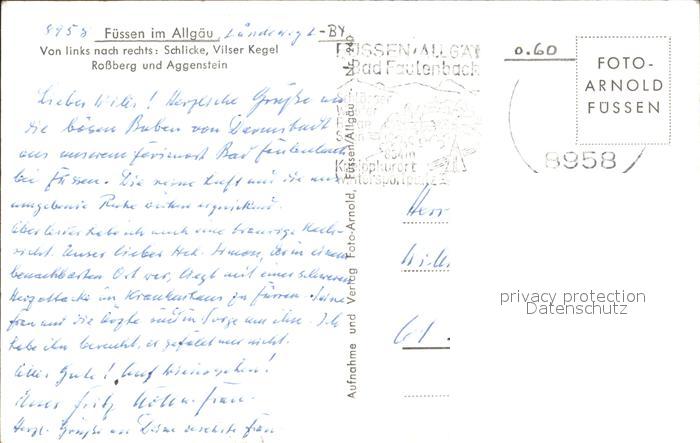 8958 Füssen im Allgäu
Von links nach rechts: Schlicke, Vilser Kegel
Roßberg und Aggenstein
FÜSSEN/ALLGÄU
Bad Faulenbach
Kneippkurort
Wintersportplatz
0.60
FOTO-
ARNOLD
FÜSSEN
8958
Aufnahme und Verlag Foto-Arnold, Füssen/Allgäu
Lieber Willi! Herzliche Grüße an
die bösen Buben von Darmstadt
aus unserem Ferienort Bad Faulenbach
bei Füssen. Die reine Luft und die uns
umgebende Ruhe wirken erquickend.
Aber leider habe ich auch eine traurige Nach-
richt. Unser lieber Simon, der in einem
benachbarten Ort war, liegt mit einer schweren
Herzattacke im Krankenhaus zu Füssen. Seine
Frau und die Ärzte sind in Sorge um ihn. Ich
habe ihn besucht, er gefällt mir nicht.
Alles Gute! Auf Wiedersehen!
Euer Fritz
Herzl. Grüße an Deine verehrte Frau.
Herrn
Willi
61
privacy protection
Datenschutz